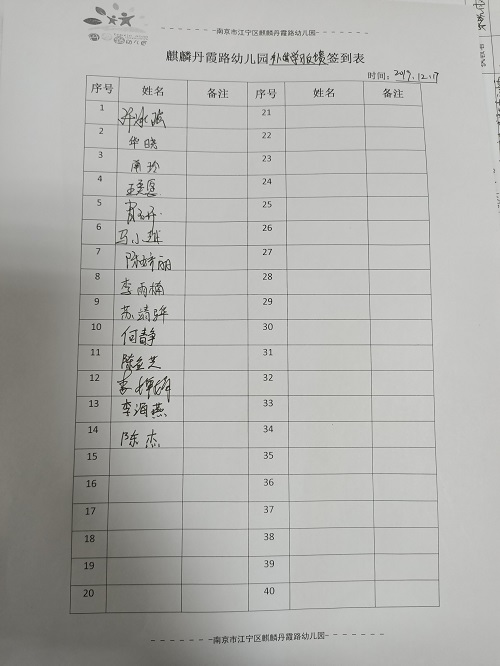 南京市江宁区麒麟丹霞路幼儿园
麒麟丹霞路幼儿园外出学习反馈签到表
时间：2019.12.17
序号 姓名 备注 序号 姓名 备注
1 21
2 华晓 22
3 周玲 23
4 24
5 25
6 马小越 26
7 陈娇丽 27
8 李雨楠 28
9 苏靖骅 29
10 何静 30
11 陈金芝 31
12 32
13 李海燕 33
14 陈杰 34
15 35
16 36
17 37
18 38
19 39
20 40
南京市江宁区麒麟丹霞路幼儿园